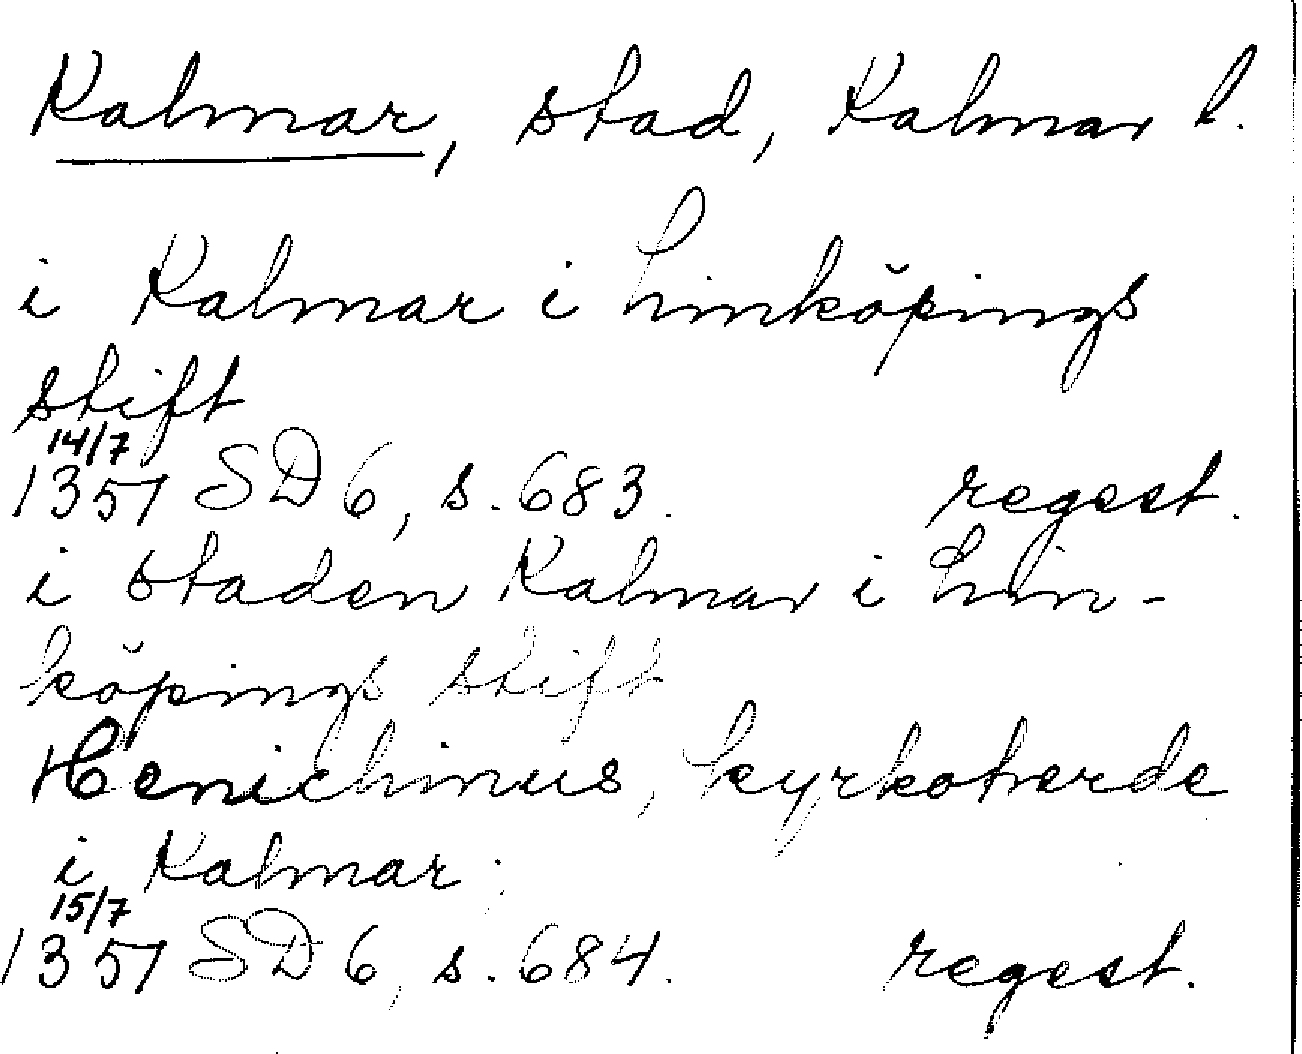 Kalmar, stad, Kalmar l.
i Kalmar i Linköpings
stift
14/7
1357 SD 6, s. 683. regest.
i staden Kalmar i Lin-
köpings stift
Henichinus, kyrkoherde
i Kalmar
15/7
1357 SD 6, s. 684. regest.